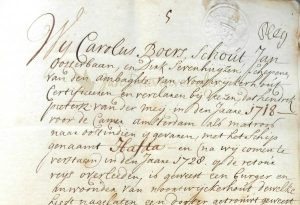 5
Wij Carolus Boers, Schout, Jan
Oosterbaan, en Dirk Sevenhuijsen, schepenen
van den ambagte van Noortwykerhout
Certificeren en verclaren bij desen dat hendrik
pieterse van der Meij in den Jaare 1718
voor de Camer Amsterdam (als matroos
naar oostindien is gevaren, met het schip
genaamt Stafla en (na wij comen te
verstaan) in den jaare 1728. op de retour
reijs overleden, is geweest een burger en
inwoonder van Noortwykerhout dewelke
heeft nagelaten een dogter getrouwt geweest